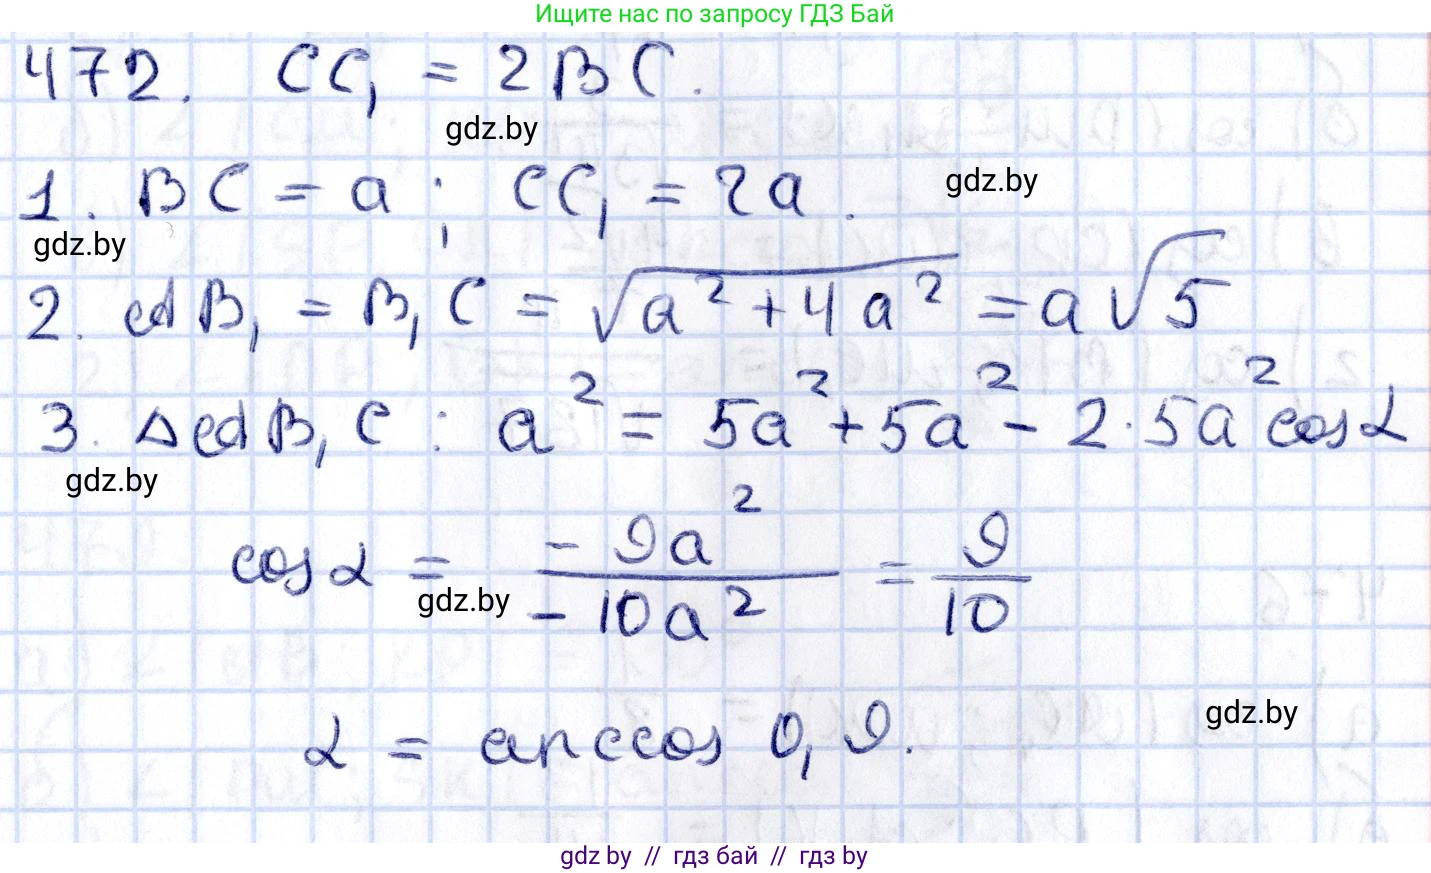 Ищите нас по запросу ГДЗ Бай
472. CC₁ = 2BC.
gdz.by
1. BC = a; CC₁ = 2a.
gdz.by
gdz.by
2. AB₁ = B₁C = √(a² + 4a²) = a√5
3. ΔAB₁C : a² = 5a² + 5a² - 2·5a² cos α
gdz.by
cos α = -9a² / -10a² = 9/10
gdz.by
gdz.by
α = arccos 0,9.
gdz by // гдз бай // гдз by